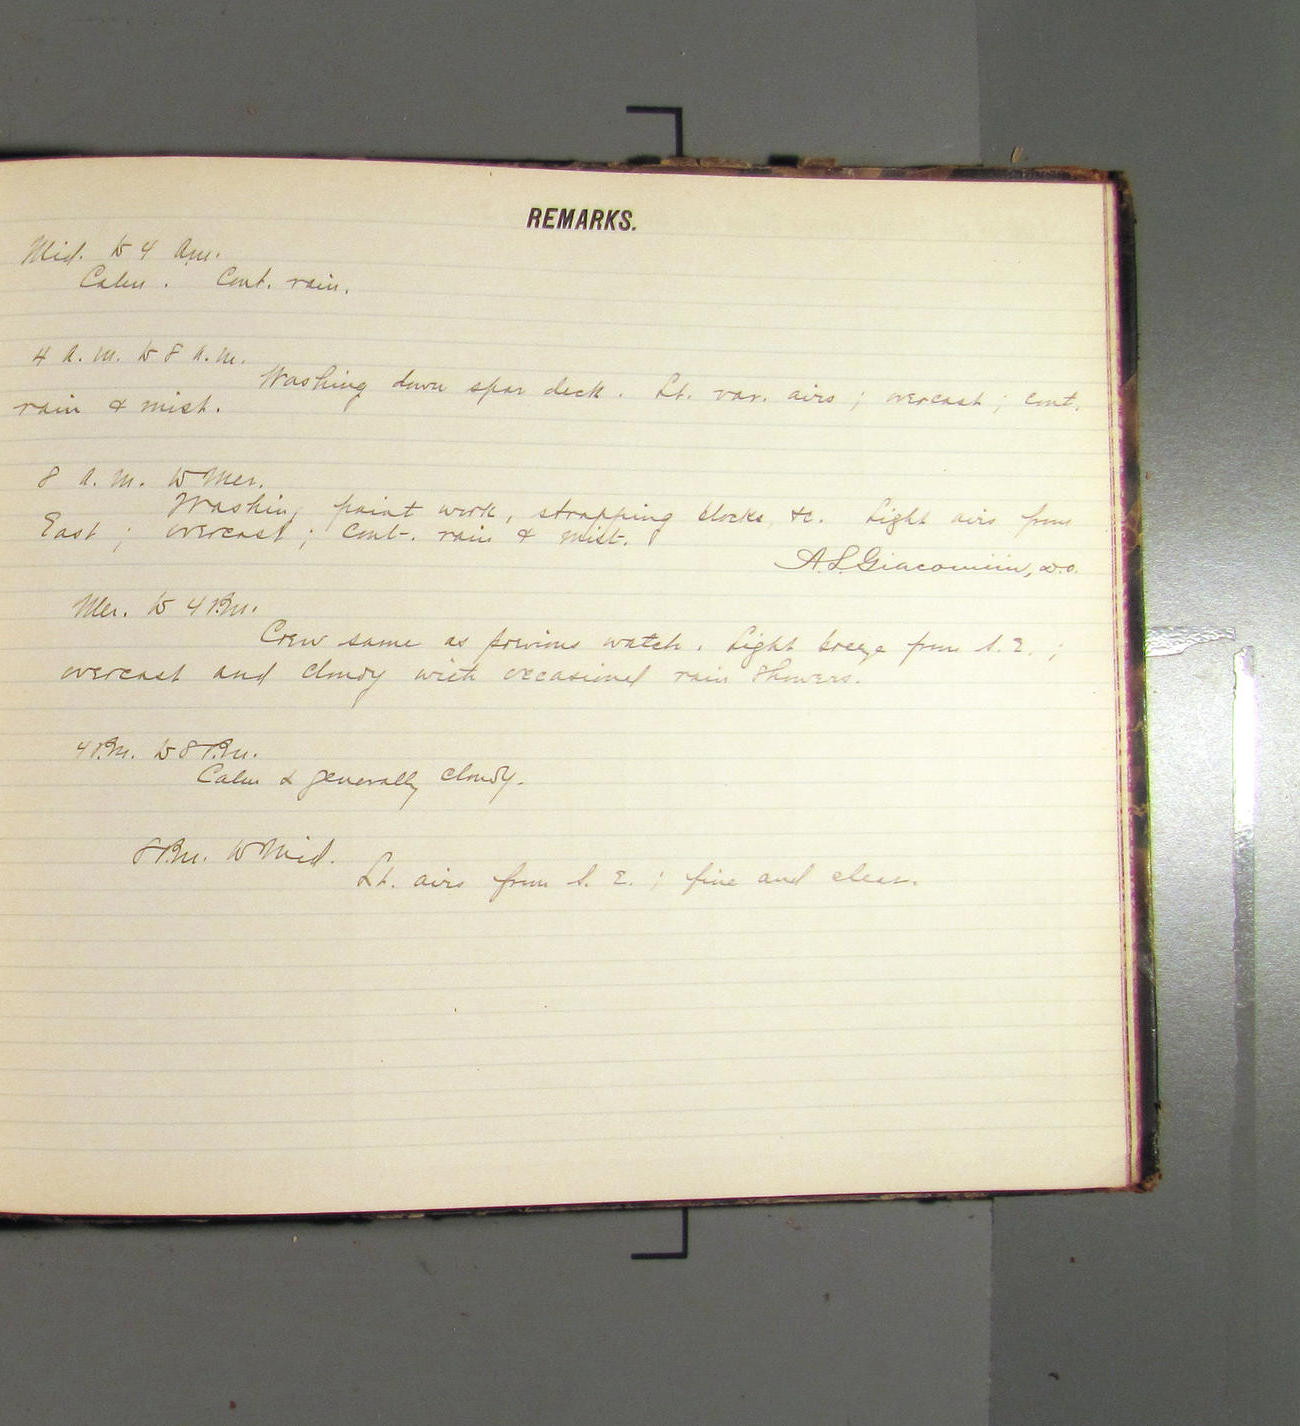 REMARKS.
Mid. to 4 a.m.
Calm. Cont. rain.
4 a.m. to 8 a.m.
Washing down spar deck. Lt. var. airs; overcast; cont.
rain & mist.
8 a.m. to Mer.
Washing paint work, strapping blocks &c. Light airs from
East; overcast; cont. rain & mist.
A. L. Giacomini, W.O.
Mer. to 4 P.m.
Crew same as previous watch. Light breeze from S. E.;
overcast and cloudy with occasional rain showers.
4 P.m. to 8 P.m.
Calm & generally cloudy.
8 P.m. to Mid.
Lt. airs from S. E.; fine and clear.